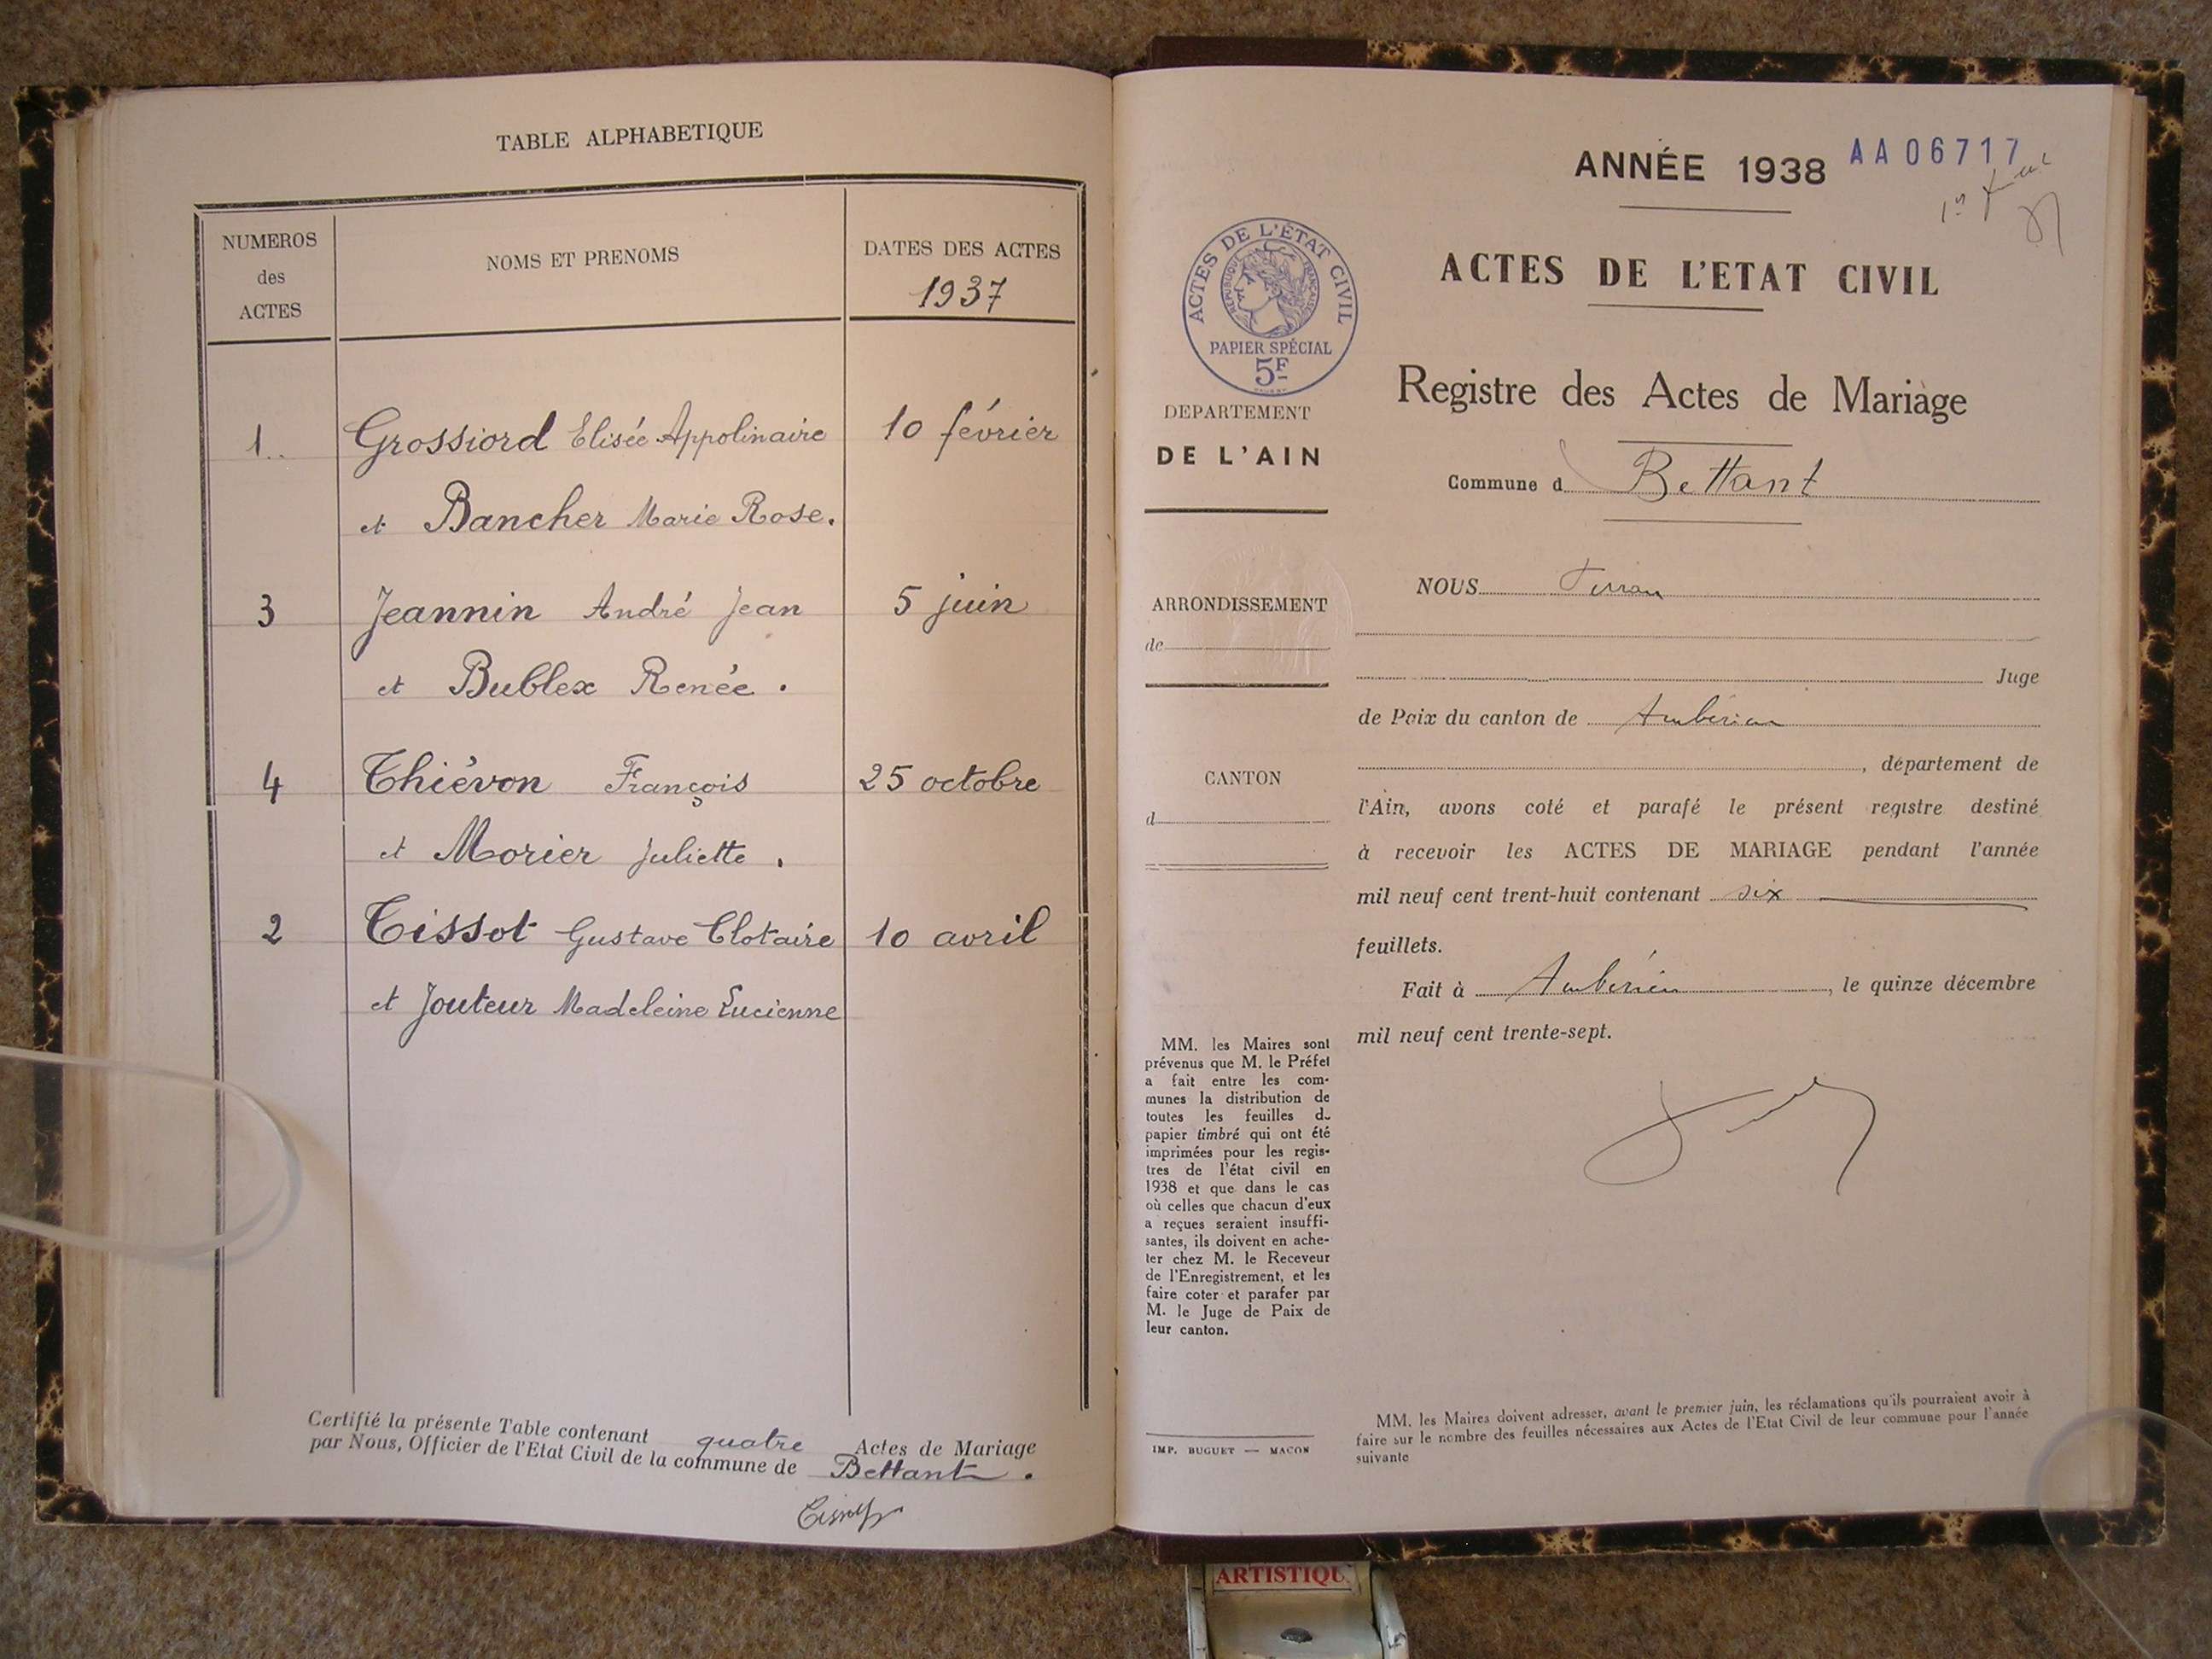 TABLE ALPHABETIQUE
NUMEROS
des
ACTES
NOMS ET PRENOMS
DATES DES ACTES
1937
1.. Grossiord Elisée Appolinaire 10 février
et Bancher Marie Rose.
3 Jeannin André Jean 5 juin
et Bublex Renée.
4 Thiévon François 25 octobre
et Morier Juliette.
2 Tissot Gustave Clotaire 10 avril
et Jouteur Madeleine Lucienne
Certifié la présente Table contenant quatre Actes de Mariage
par Nous, Officier de l'Etat Civil de la commune de Bettant.
ANNÉE 1938
AA06717
ACTES DE L'ÉTAT CIVIL
RÉPUBLIQUE FRANÇAISE
PAPIER SPÉCIAL
5F
ACTES DE L'ETAT CIVIL
Registre des Actes de Mariage
Commune d Bettant
DEPARTEMENT
DE L'AIN
ARRONDISSEMENT
de
CANTON
d
NOUS
Juge
de Paix du canton de Ambérieu
, département de
l'Ain, avons coté et parafé le présent registre destiné
à recevoir les ACTES DE MARIAGE pendant l'année
mil neuf cent trent-huit contenant six
feuillets.
Fait à Ambérieu, le quinze décembre
mil neuf cent trente-sept.
MM. les Maires sont
prévenus que M. le Préfet
a fait entre les com-
munes la distribution de
toutes les feuilles du
papier timbré qui ont été
imprimées pour les regis-
tres de l'état civil en
1938 et que dans le cas
où celles que chacun d'eux
a reçues seraient insuffi-
santes, ils doivent en ache-
ter chez M. le Receveur
de l'Enregistrement, et les
faire coter et parafer par
M. le Juge de Paix de
leur canton.
IMP. BUGUET — MACON
MM. les Maires doivent adresser, avant le premier juin, les réclamations qu'ils pourraient avoir à
faire sur le nombre des feuilles nécessaires aux Actes de l'Etat Civil de leur commune pour l'année
suivante
ARTISTIQU